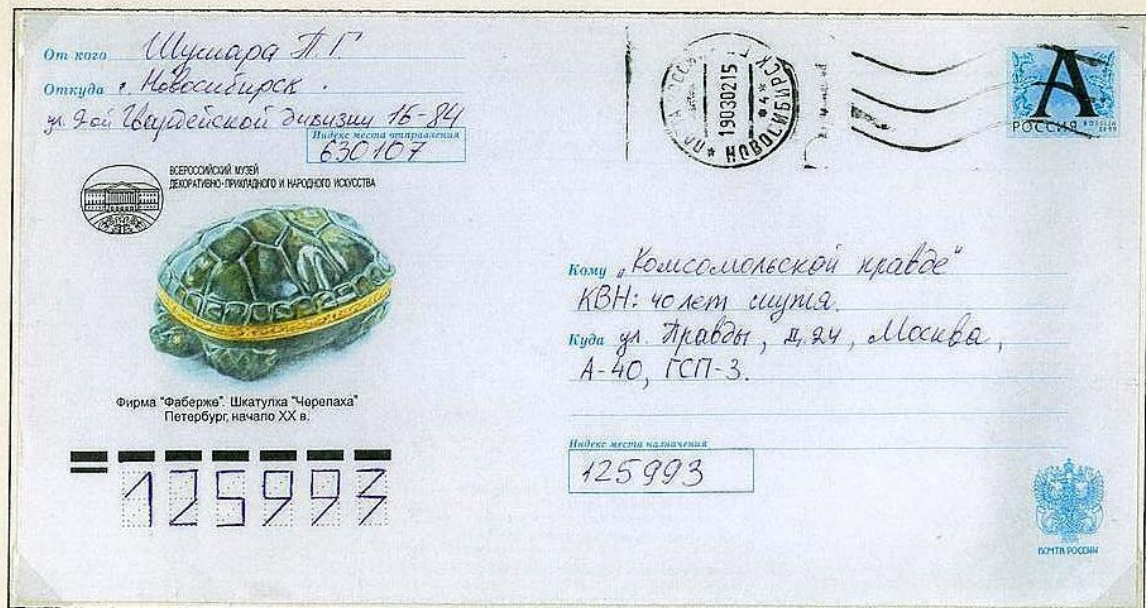 От кого Шушара П. Г.
Откуда г. Новосибирск.
ул. 9ой Гвардейской дивизии 16-84
Индекс места отправления
630107
ВСЕРОССИЙСКИЙ МУЗЕЙ
ДЕКОРАТИВНО-ПРИКЛАДНОГО И НАРОДНОГО ИСКУССТВА
Фирма "Фаберже". Шкатулка "Черепаха"
Петербург, начало XX в.
125993
19030215
* НОВОСИБИРСК
*4*
А
РОССИЯ
Кому „Комсомольской правде“
КВН: 40 лет спустя.
Куда ул. Правды, д. 24, Москва,
А-40, ГСП-3.
Индекс места назначения
125993
ПОЧТА РОССИИ